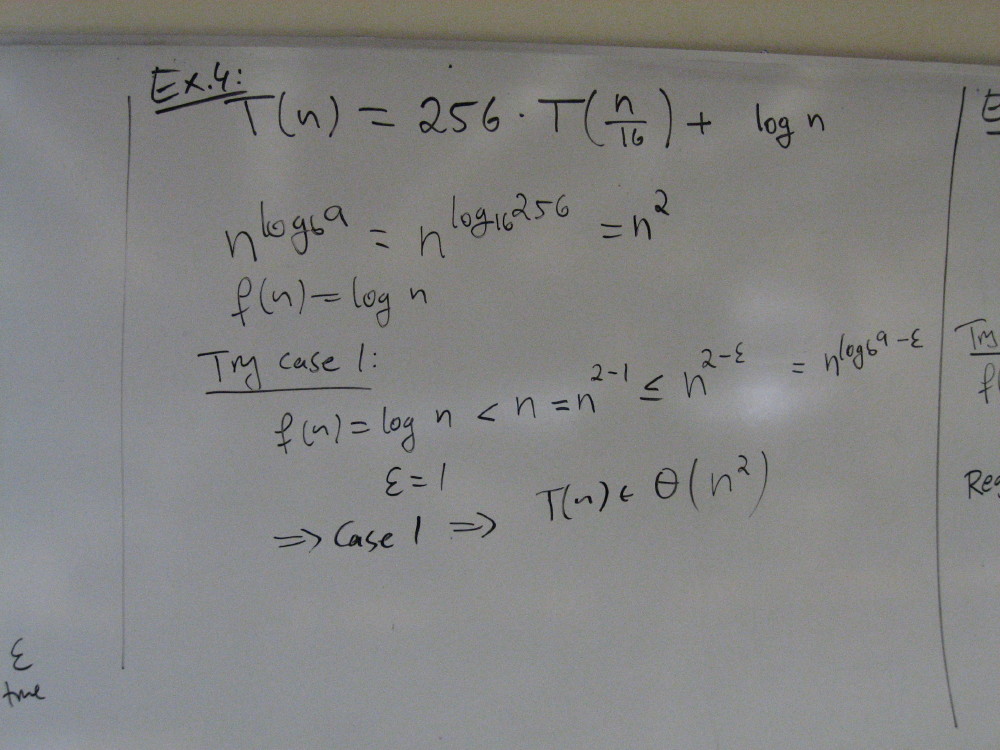 Ex.4:
T(n) = 256 · T(n/16) + log n
n^(log_b a) = n^(log_16 256) = n^2
f(n) = log n
Try case 1:
f(n) = log n < n = n^(2-1) ≤ n^(2-ε) = n^(log_b a - ε)
ε = 1
⇒ Case 1 ⇒ T(n) ∈ Θ(n^2)
ε
true
E
Try
f(
Reg